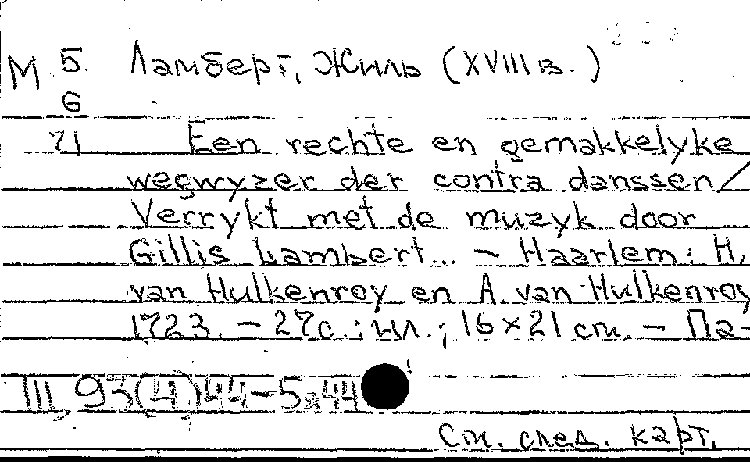 М 5 Ламберт, Жиль (XVIII в.)
6
71 Een rechte en gemakkelyke
wegwyzer der contra danssen/
Verrykt met de muzyk door
Gillis Lambert... - Haarlem: H.
van Hulkenroy en A. van Hulkenroy
1723. - 27с.: ил.; 16x21 см. - Па-
III, 93(4)44-5я44
См. след. карт.